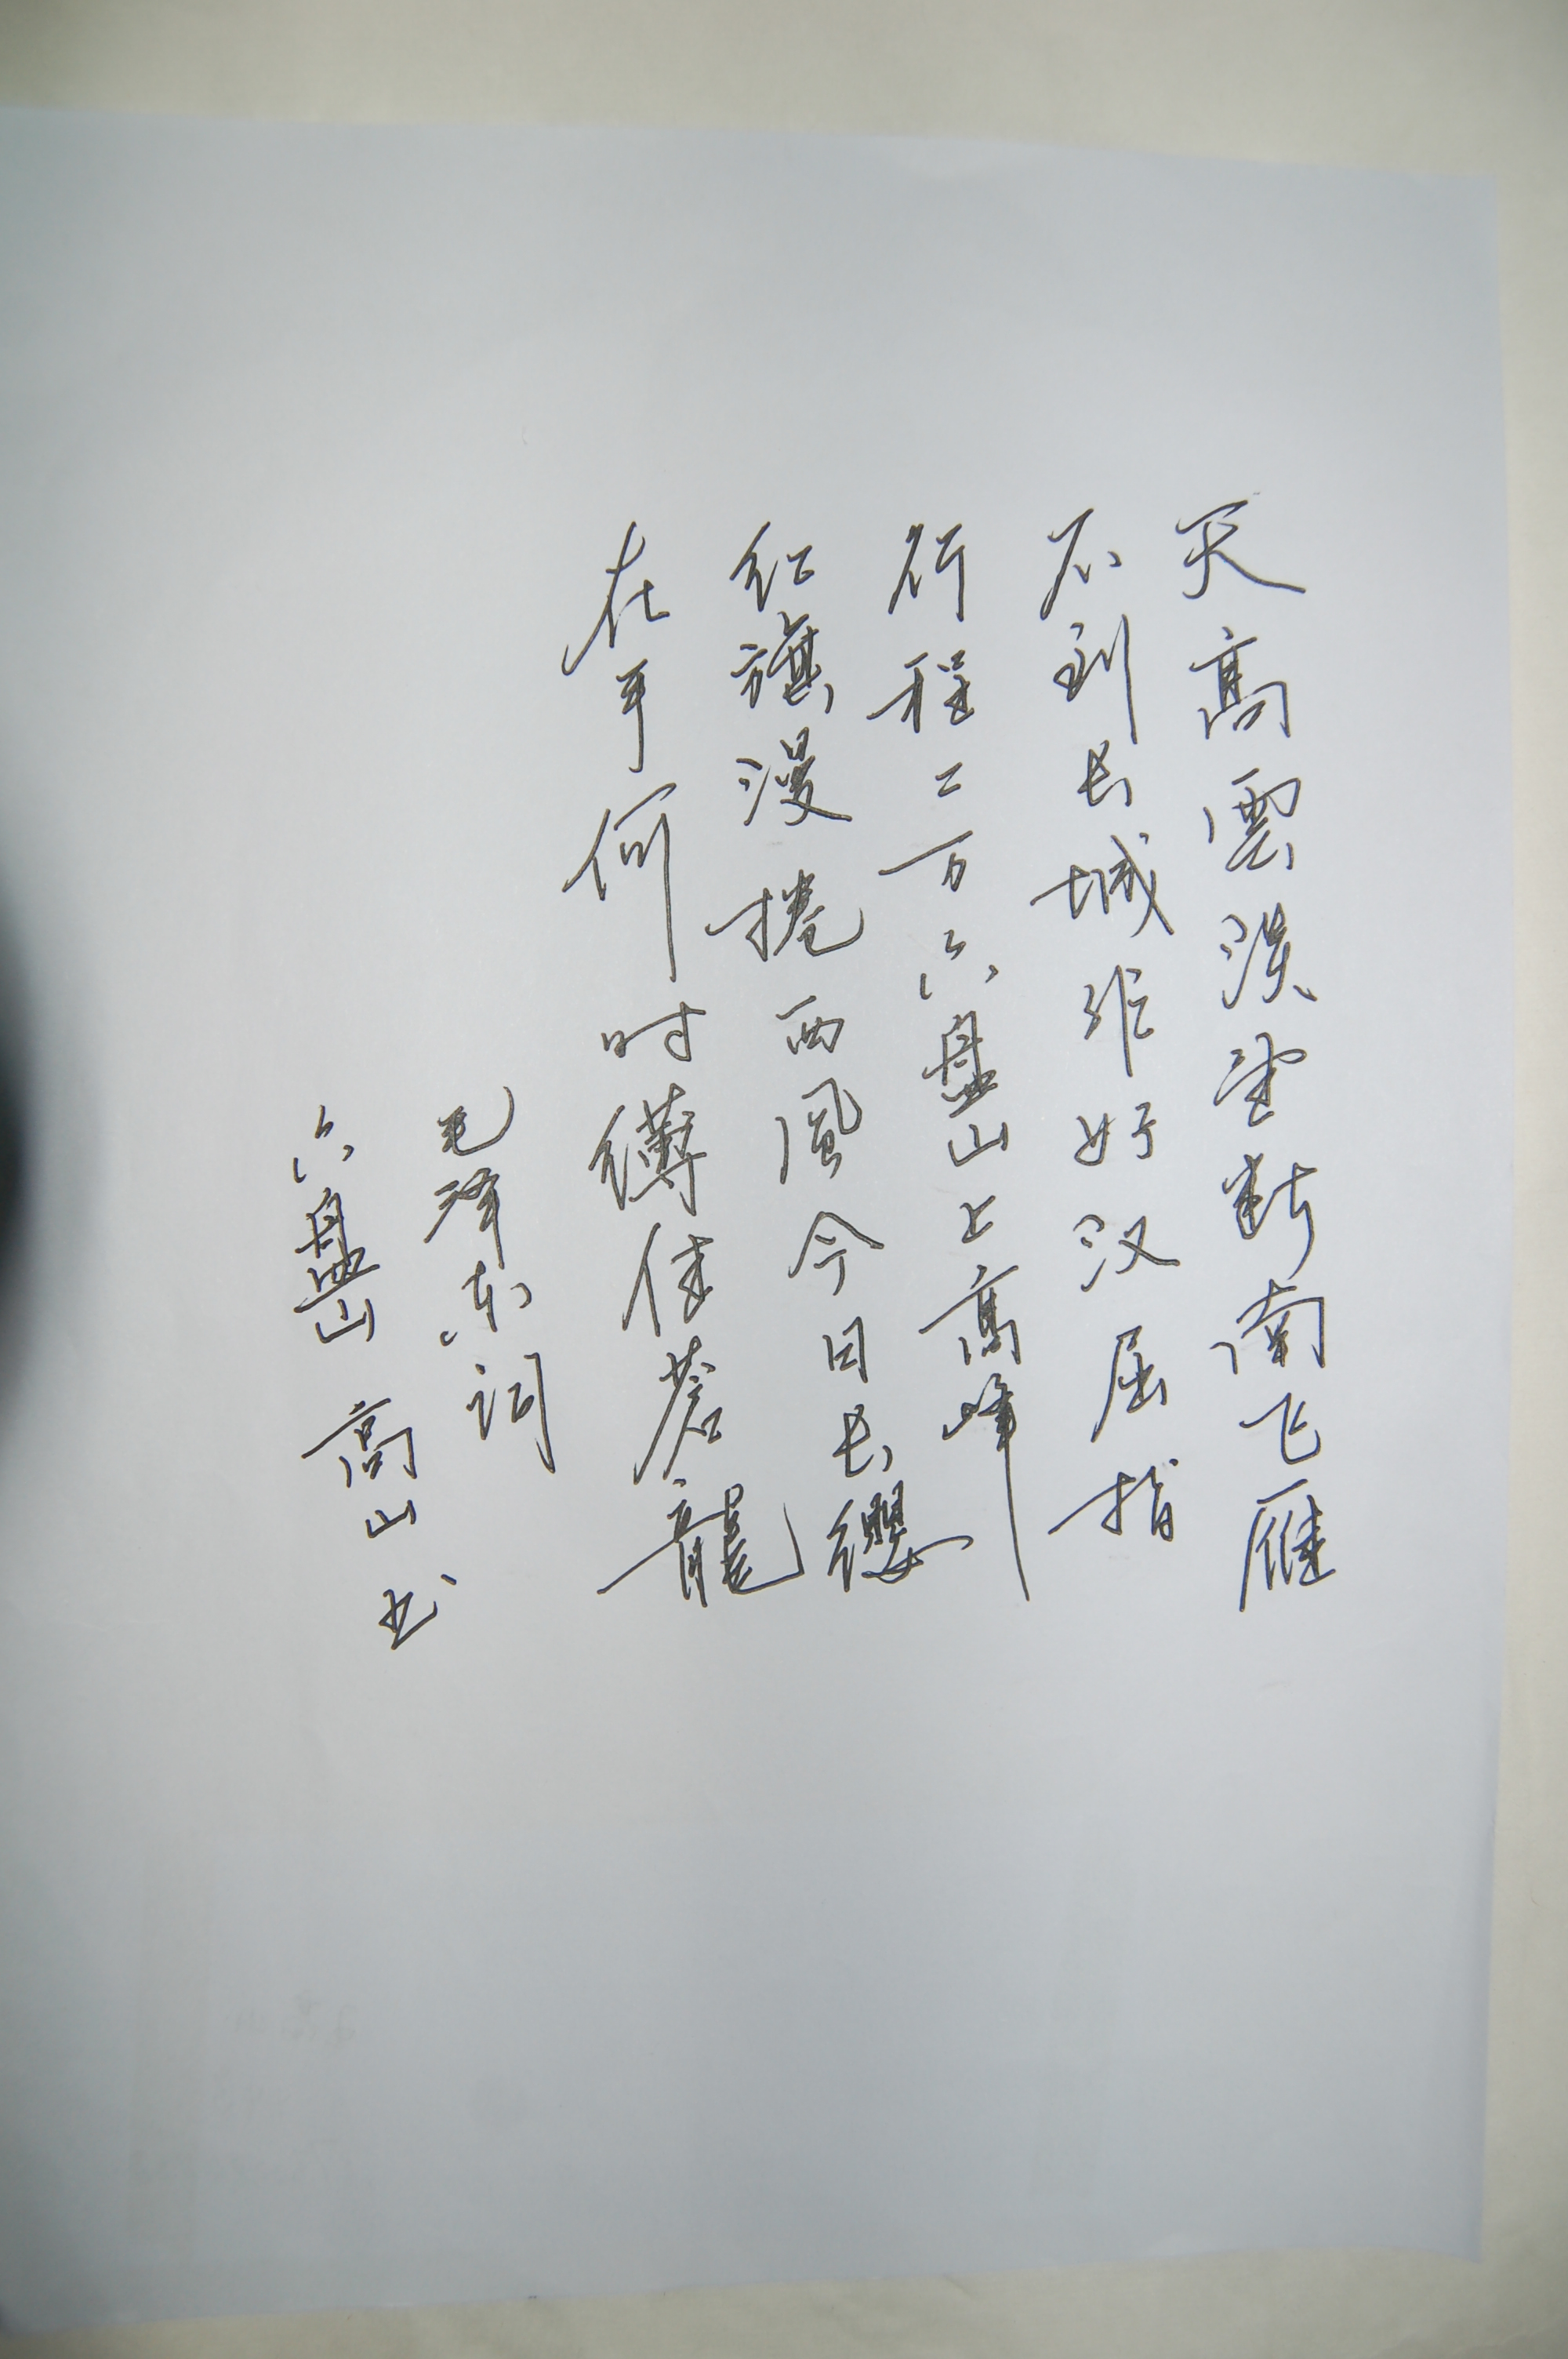 天高雲淡望断南飞雁
不到长城非好汉屈指
行程二万六盘山上高峰
红旗漫捲西風今日长纓
在手何时縛住蒼龍
毛泽东词
六盘山 高山书